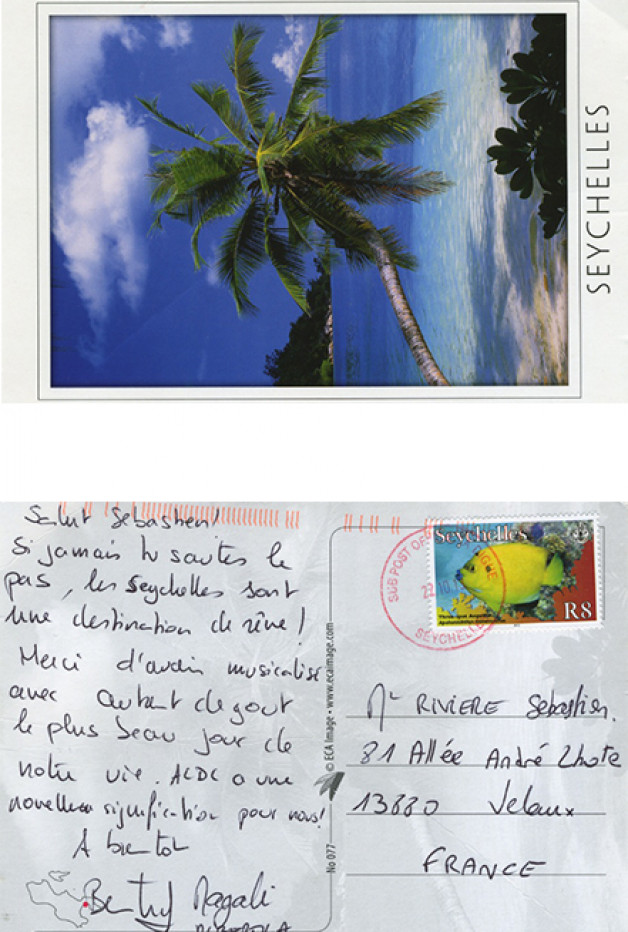 SEYCHELLES
Salut Sebastien!
Si jamais tu sautes le
pas, les Seychelles sont
une destination de rêve!
Merci d'avoir musicalisé
avec autant de gout
le plus beau jour de
notre vie. ACDC a une
nouvelle signification pour nous!
A bientot
Magali
© ECA Image • www.ecaimage.com
No 077
SUB POST OFF
22.10
SEYCHELLES
Seychelles
R8
Mr RIVIERE Sébastien.
81 Allée André Lhote
13880 Velaux
FRANCE